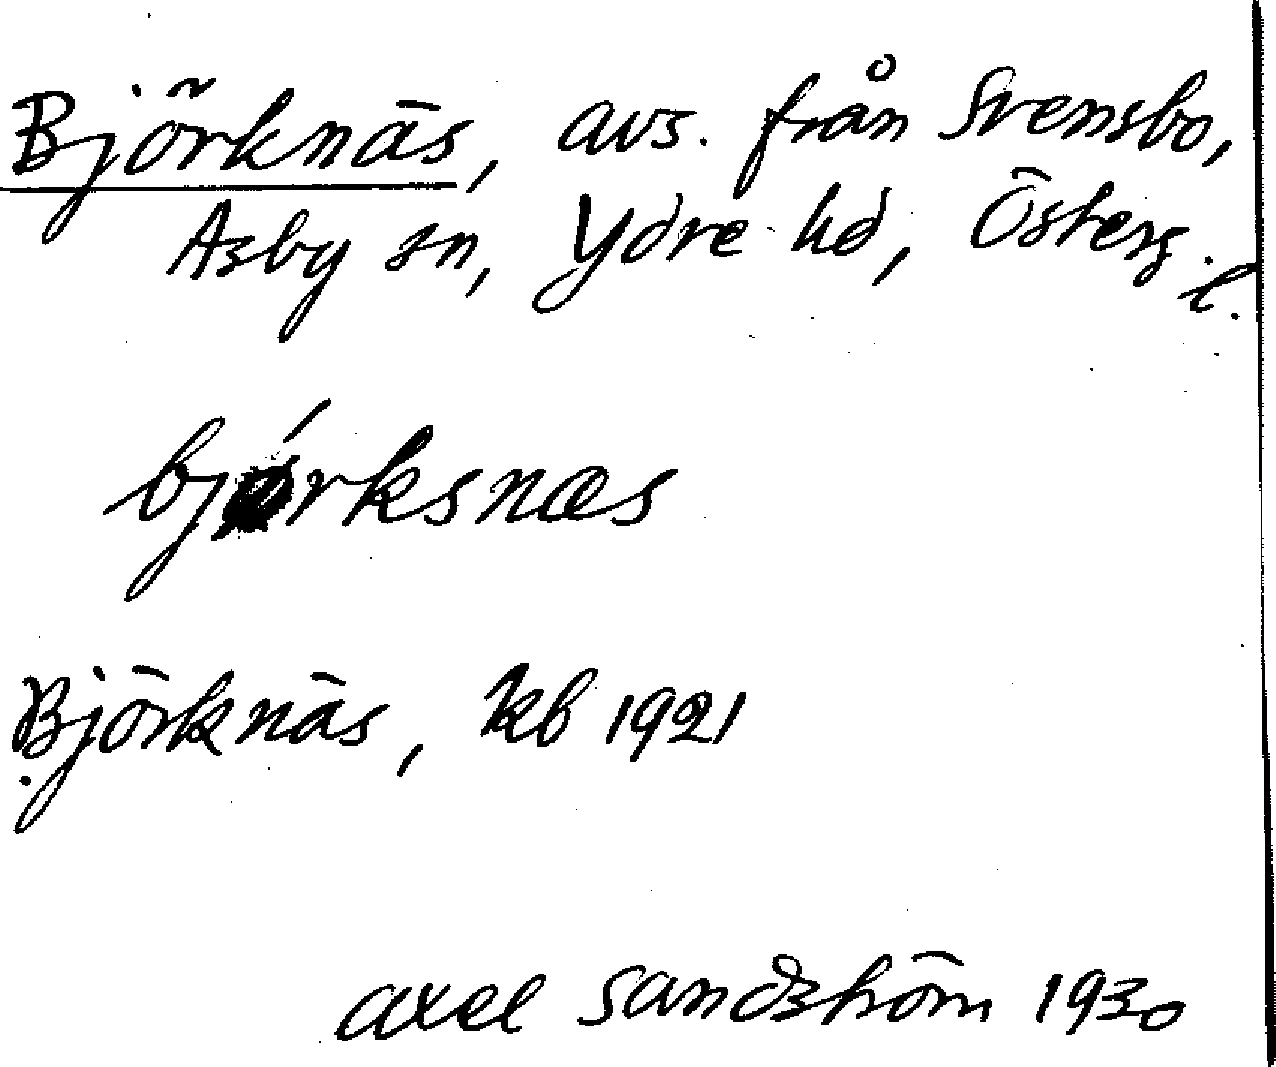 Björknäs, avs. från Svensbo,
Asby sn, Ydre hd, Österg.l.
bjǿrksnæs
Björknäs, kb 1921
Axel Sandström 1930